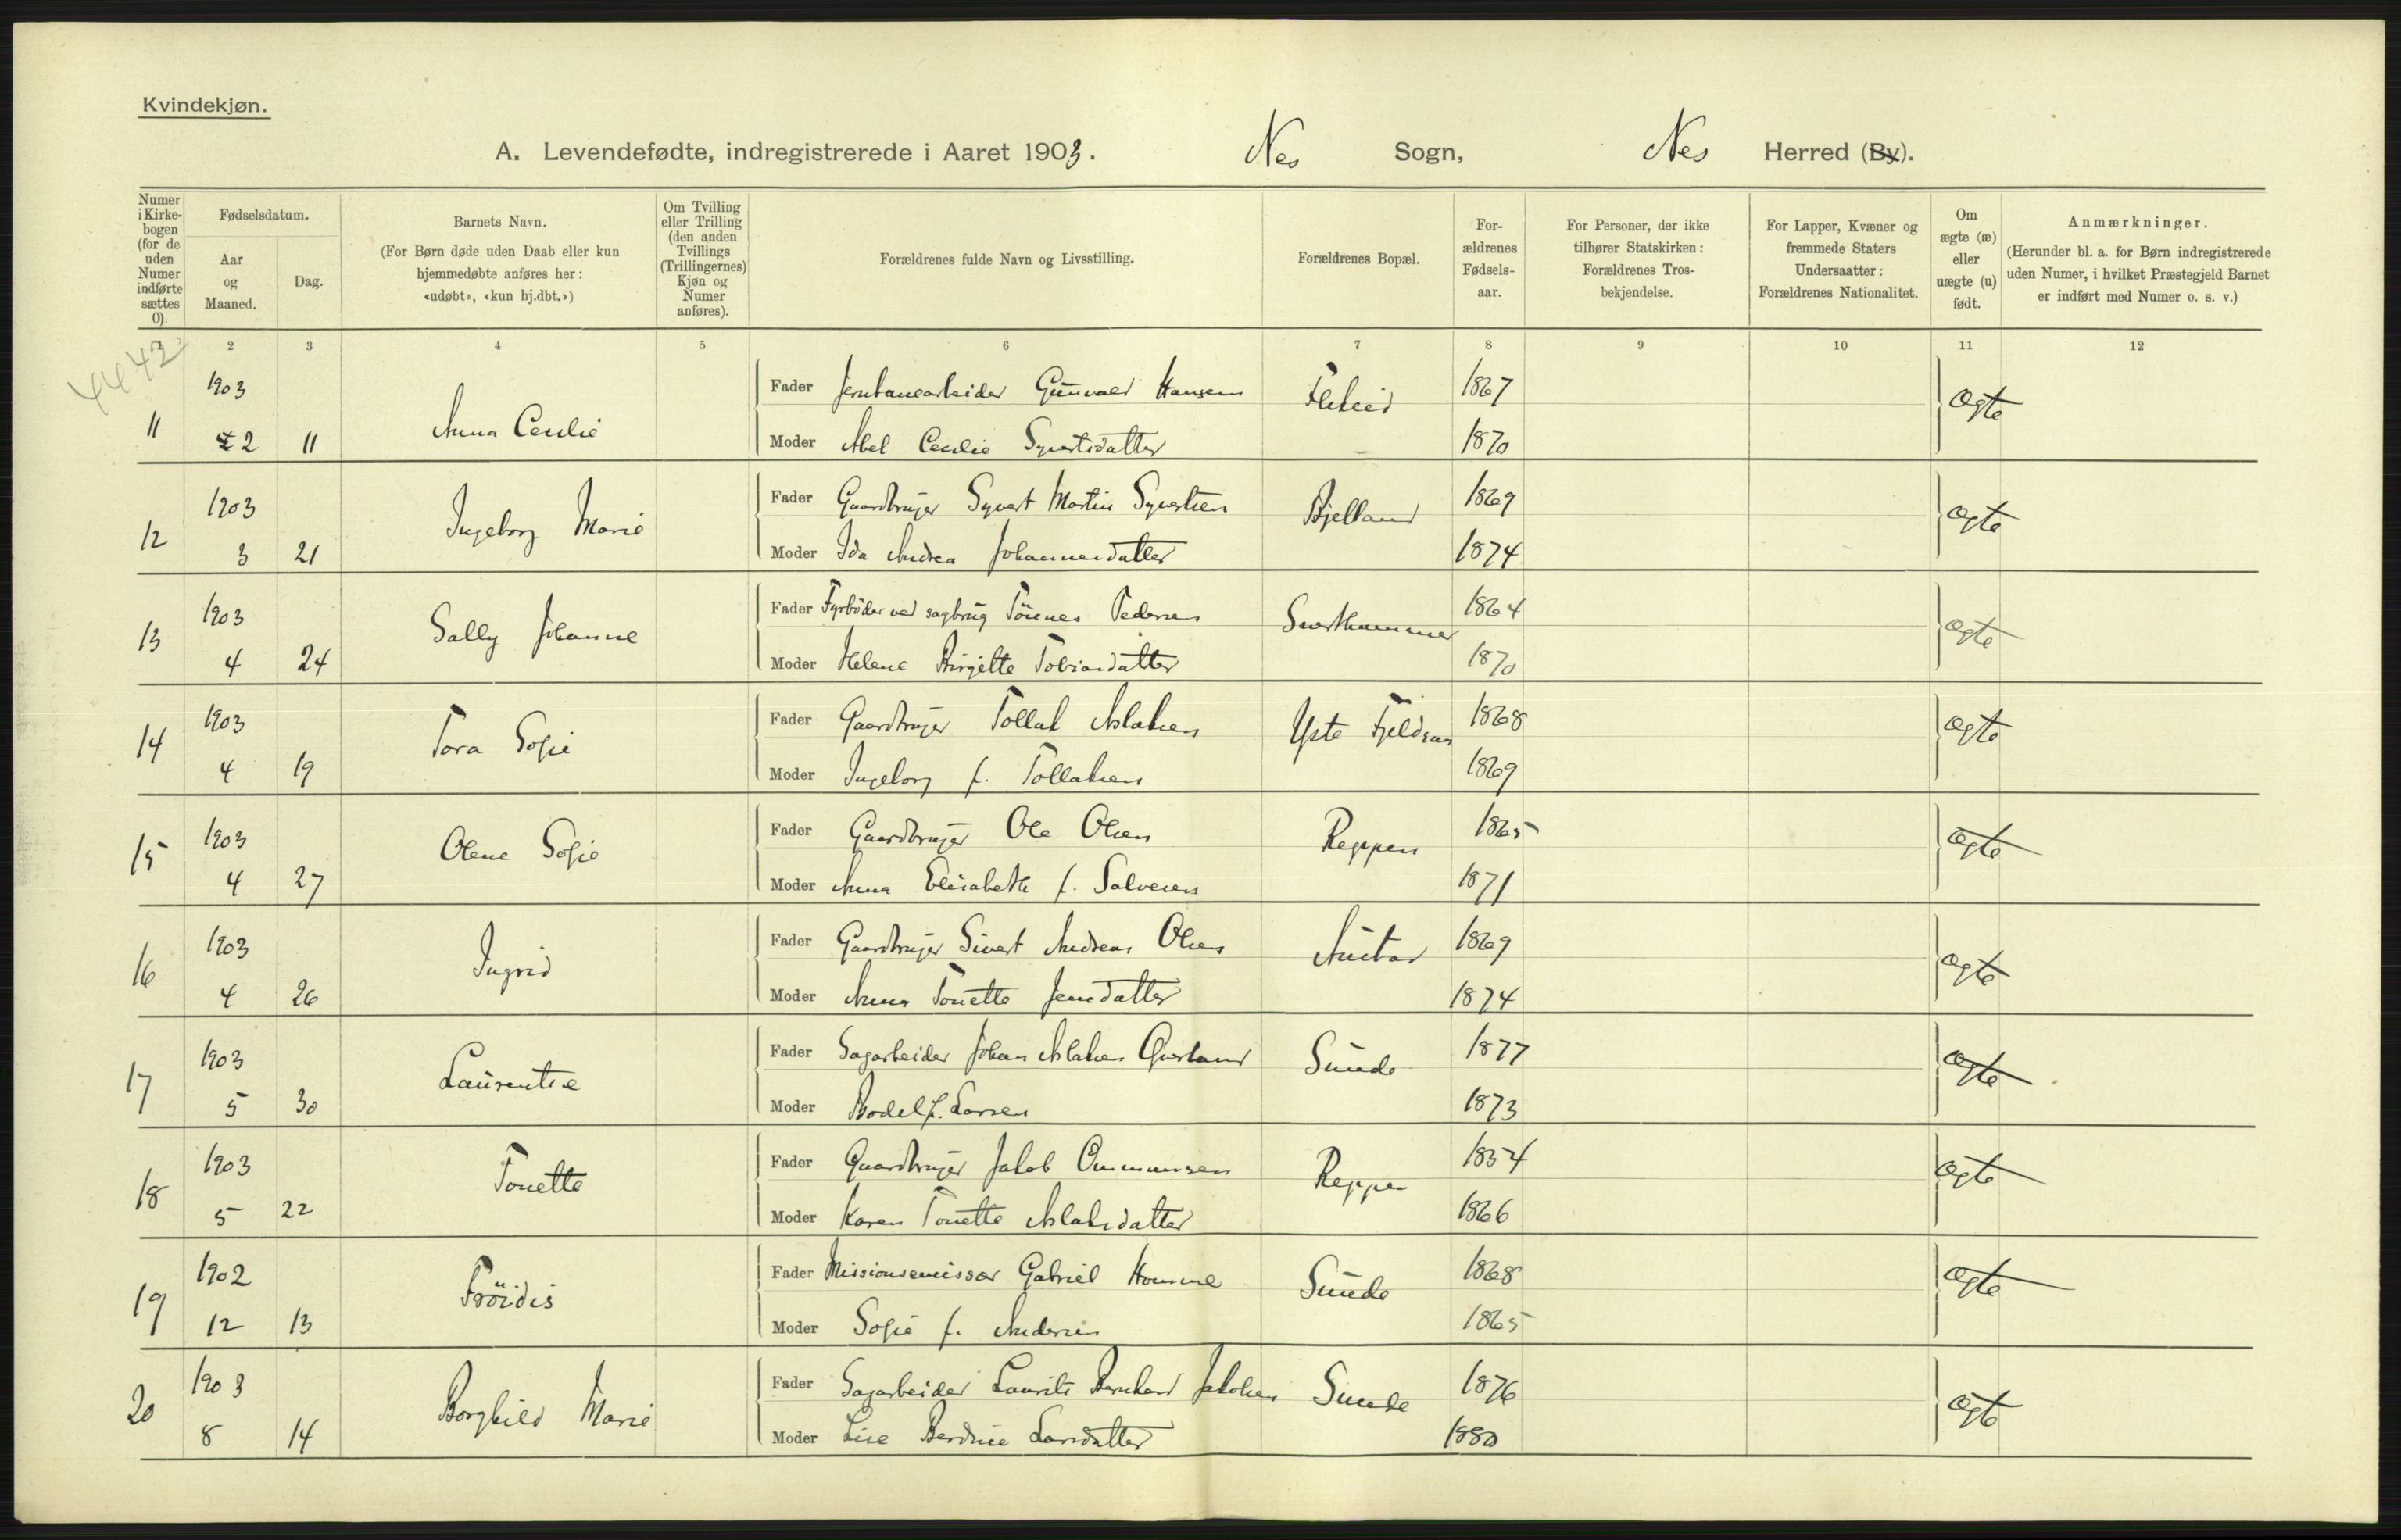 Kvindekjøn.
A. Levendefødte, indregistrerede i Aaret 1903. Nes Sogn, Nes Herred (By).
Numer i Kirkebogen (for de uden Numer indførte sættes 0).
Fødselsdatum.
Aar og Maaned.
Dag.
Barnets Navn.
(For Børn døde uden Daab eller kun hjemmedøbte anføres her: «udøbt», «kun hj.dbt.»)
Om Tvilling eller Trilling (den anden Tvillings (Trillingernes) Kjøn og Numer anføres).
Forældrenes fulde Navn og Livsstilling.
Forældrenes Bopæl.
Forældrenes Fødselsaar.
For Personer, der ikke tilhører Statskirken: Forældrenes Trosbekjendelse.
For Lapper, Kvæner og fremmede Staters Undersaatter: Forældrenes Nationalitet.
Om ægte (æ) eller uægte (u) født.
Anmærkninger.
(Herunder bl. a. for Børn indregistrerede uden Numer, i hvilket Præstegjeld Barnet er indført med Numer o. s. v.)
2 3 4 5 6 7 8 9 10 11 12
4442
11 1903 2 11 Anna Cecilie
Fader Jernbanearbeider Gunvald Hansen 1867 ægte
Moder Abel Cecilie Syvertsdatter 1870
12 1903 3 21 Ingeborg Marie
Fader Gaardbruger Syvert Martin Syvertsen Bjelland 1869 ægte
Moder Ida Andrea Johannesdatter 1874
13 1903 4 24 Sally Johanne
Fader Fyrbøder ved sagbrug Tönnes Pedersen Svarthammer 1864 ægte
Moder Helene Birgitte Tobiasdatter 1870
14 1903 4 19 Tora Sofie
Fader Gaardbruger Tollak Aslaksen Yste Fjeldsaa 1868 ægte
Moder Ingeborg f. Tollaksen 1869
15 1903 4 27 Olene Sofie
Fader Gaardbruger Ole Olsen Reppen 1865 ægte
Moder Anna Elisabeth f. Salvesen 1871
16 1903 4 26 Ingrid
Fader Gaardbruger Sivert Andreas Olsen 1869 ægte
Moder Anna Tonette Jensdatter 1874
17 1903 5 30 Laurentse
Fader Sagarbeider Johan Aslaksen Sunde 1877 ægte
Moder Bodel f. Larsen 1873
18 1903 5 22 Tonette
Fader Gaardbruger Jakob Ommunsen Reppen 1854 ægte
Moder Karen Tonette Aslaksdatter 1866
19 1902 12 13 Fröidis
Fader Missionsemissær Gabriel Homme Sunde 1868 ægte
Moder Sofie f. Andersen 1865
20 1903 8 14 Borghild Marie
Fader Sagarbeider Laurits Bernhard Jakobsen Sunde 1876 ægte
Moder Lise Berdine Larsdatter 1880